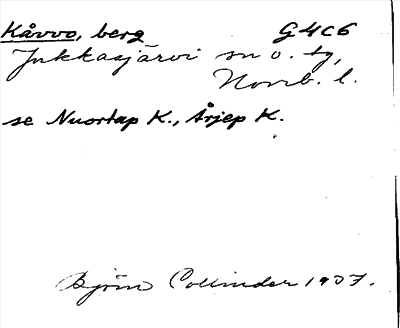 Kåvvo, berg G4C6
Jukkasjärvi sn o. tg,
Norrb. l.
se Nuortap K., Årjep K.
Björn Collinder 1937.